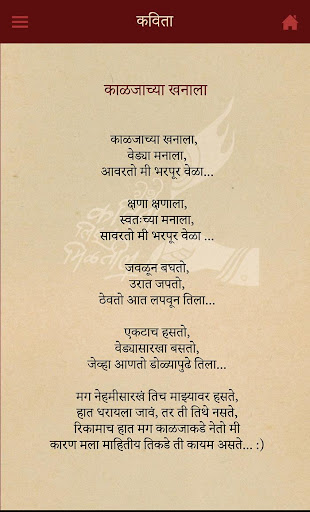 कविता
काळजाच्या खनाला
काळजाच्या खनाला,
वेड्या मनाला,
आवरतो मी भरपूर वेळा...
क्षणा क्षणाला,
स्वतःच्या मनाला,
सावरतो मी भरपूर वेळा ...
जवळून बघतो,
उरात जपतो,
ठेवतो आत लपवून तिला...
एकटाच हसतो,
वेड्यासारखा बसतो,
जेव्हा आणतो डोळ्यापुढे तिला...
मग नेहमीसारखं तिच माझ्यावर हसते,
हात धरायला जावं, तर ती तिथे नसते,
रिकामाच हात मग काळजाकडे नेतो मी
कारण मला माहितीय तिकडे ती कायम असते... :)